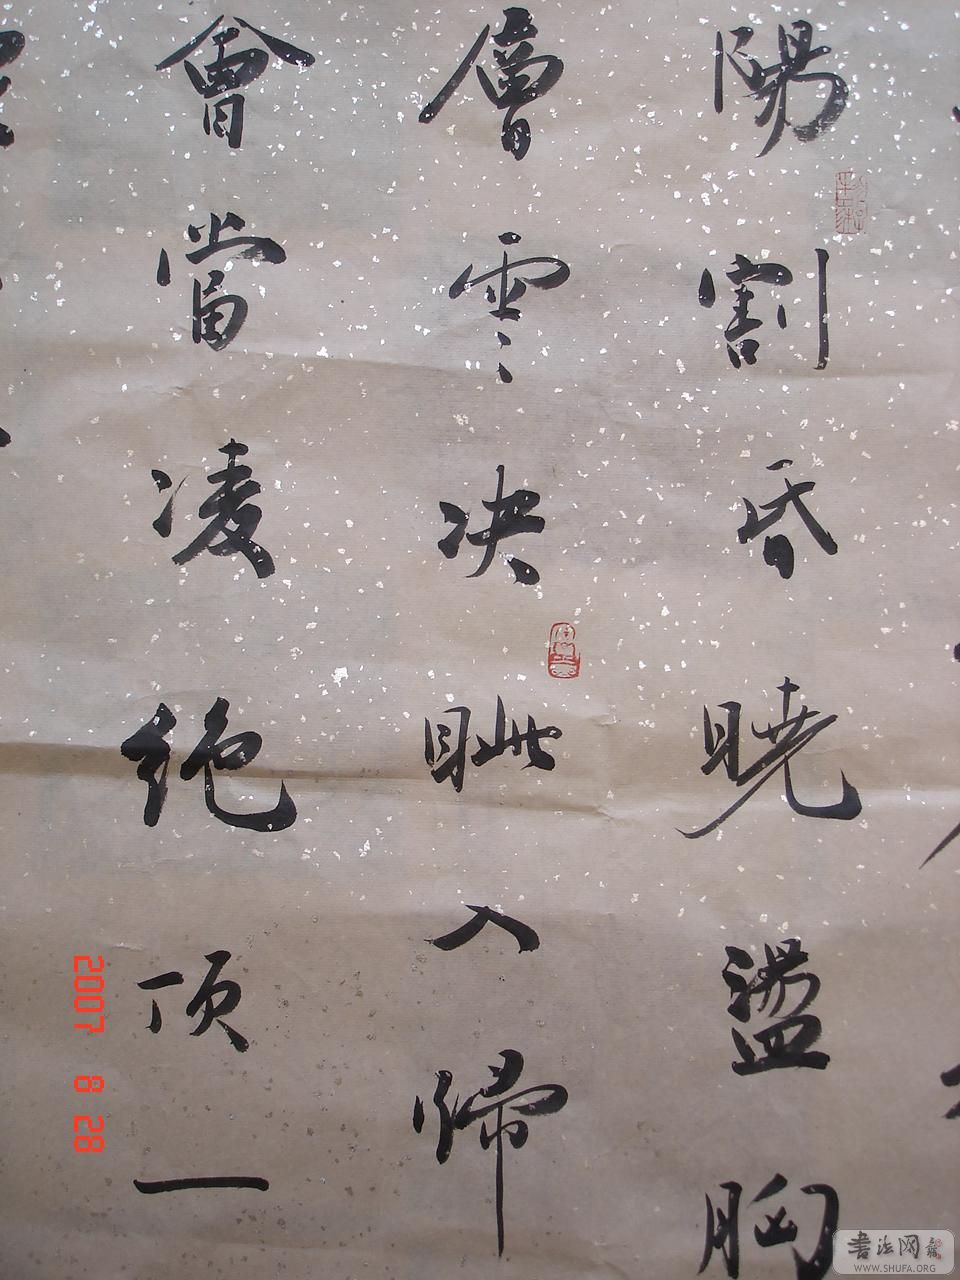 陽割昏曉盪胸
層雲決眦入歸
會當凌絶頂一
2007 8 28
書法网
WWW.SHUFA.ORG